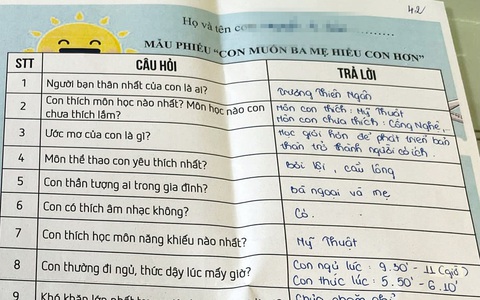 4.2
Họ và tên con
MẪU PHIẾU "CON MUỐN BA MẸ HIỂU CON HƠN"
STT CÂU HỎI TRẢ LỜI
1 Người bạn thân nhất của con là ai? Trương Thiên Ngân
2 Con thích môn học nào nhất? Môn học nào con chưa thích lắm? Môn con thích: Mỹ Thuật
Môn con chưa thích: Công Nghệ.
3 Ước mơ của con là gì? Học giỏi hơn để phát triển bản
thân trở thành người có ích.
4 Môn thể thao con yêu thích nhất? Bơi lội, cầu lông
5 Con thần tượng ai trong gia đình? Bà ngoại và mẹ
6 Con có thích âm nhạc không? Có.
7 Con thích học môn năng khiếu nào nhất? Mỹ Thuật
8 Con thường đi ngủ, thức dậy lúc mấy giờ? Con ngủ lúc: 9.30' - 11 (giờ)
Con thức lúc: 5.50' - 6.10'
9